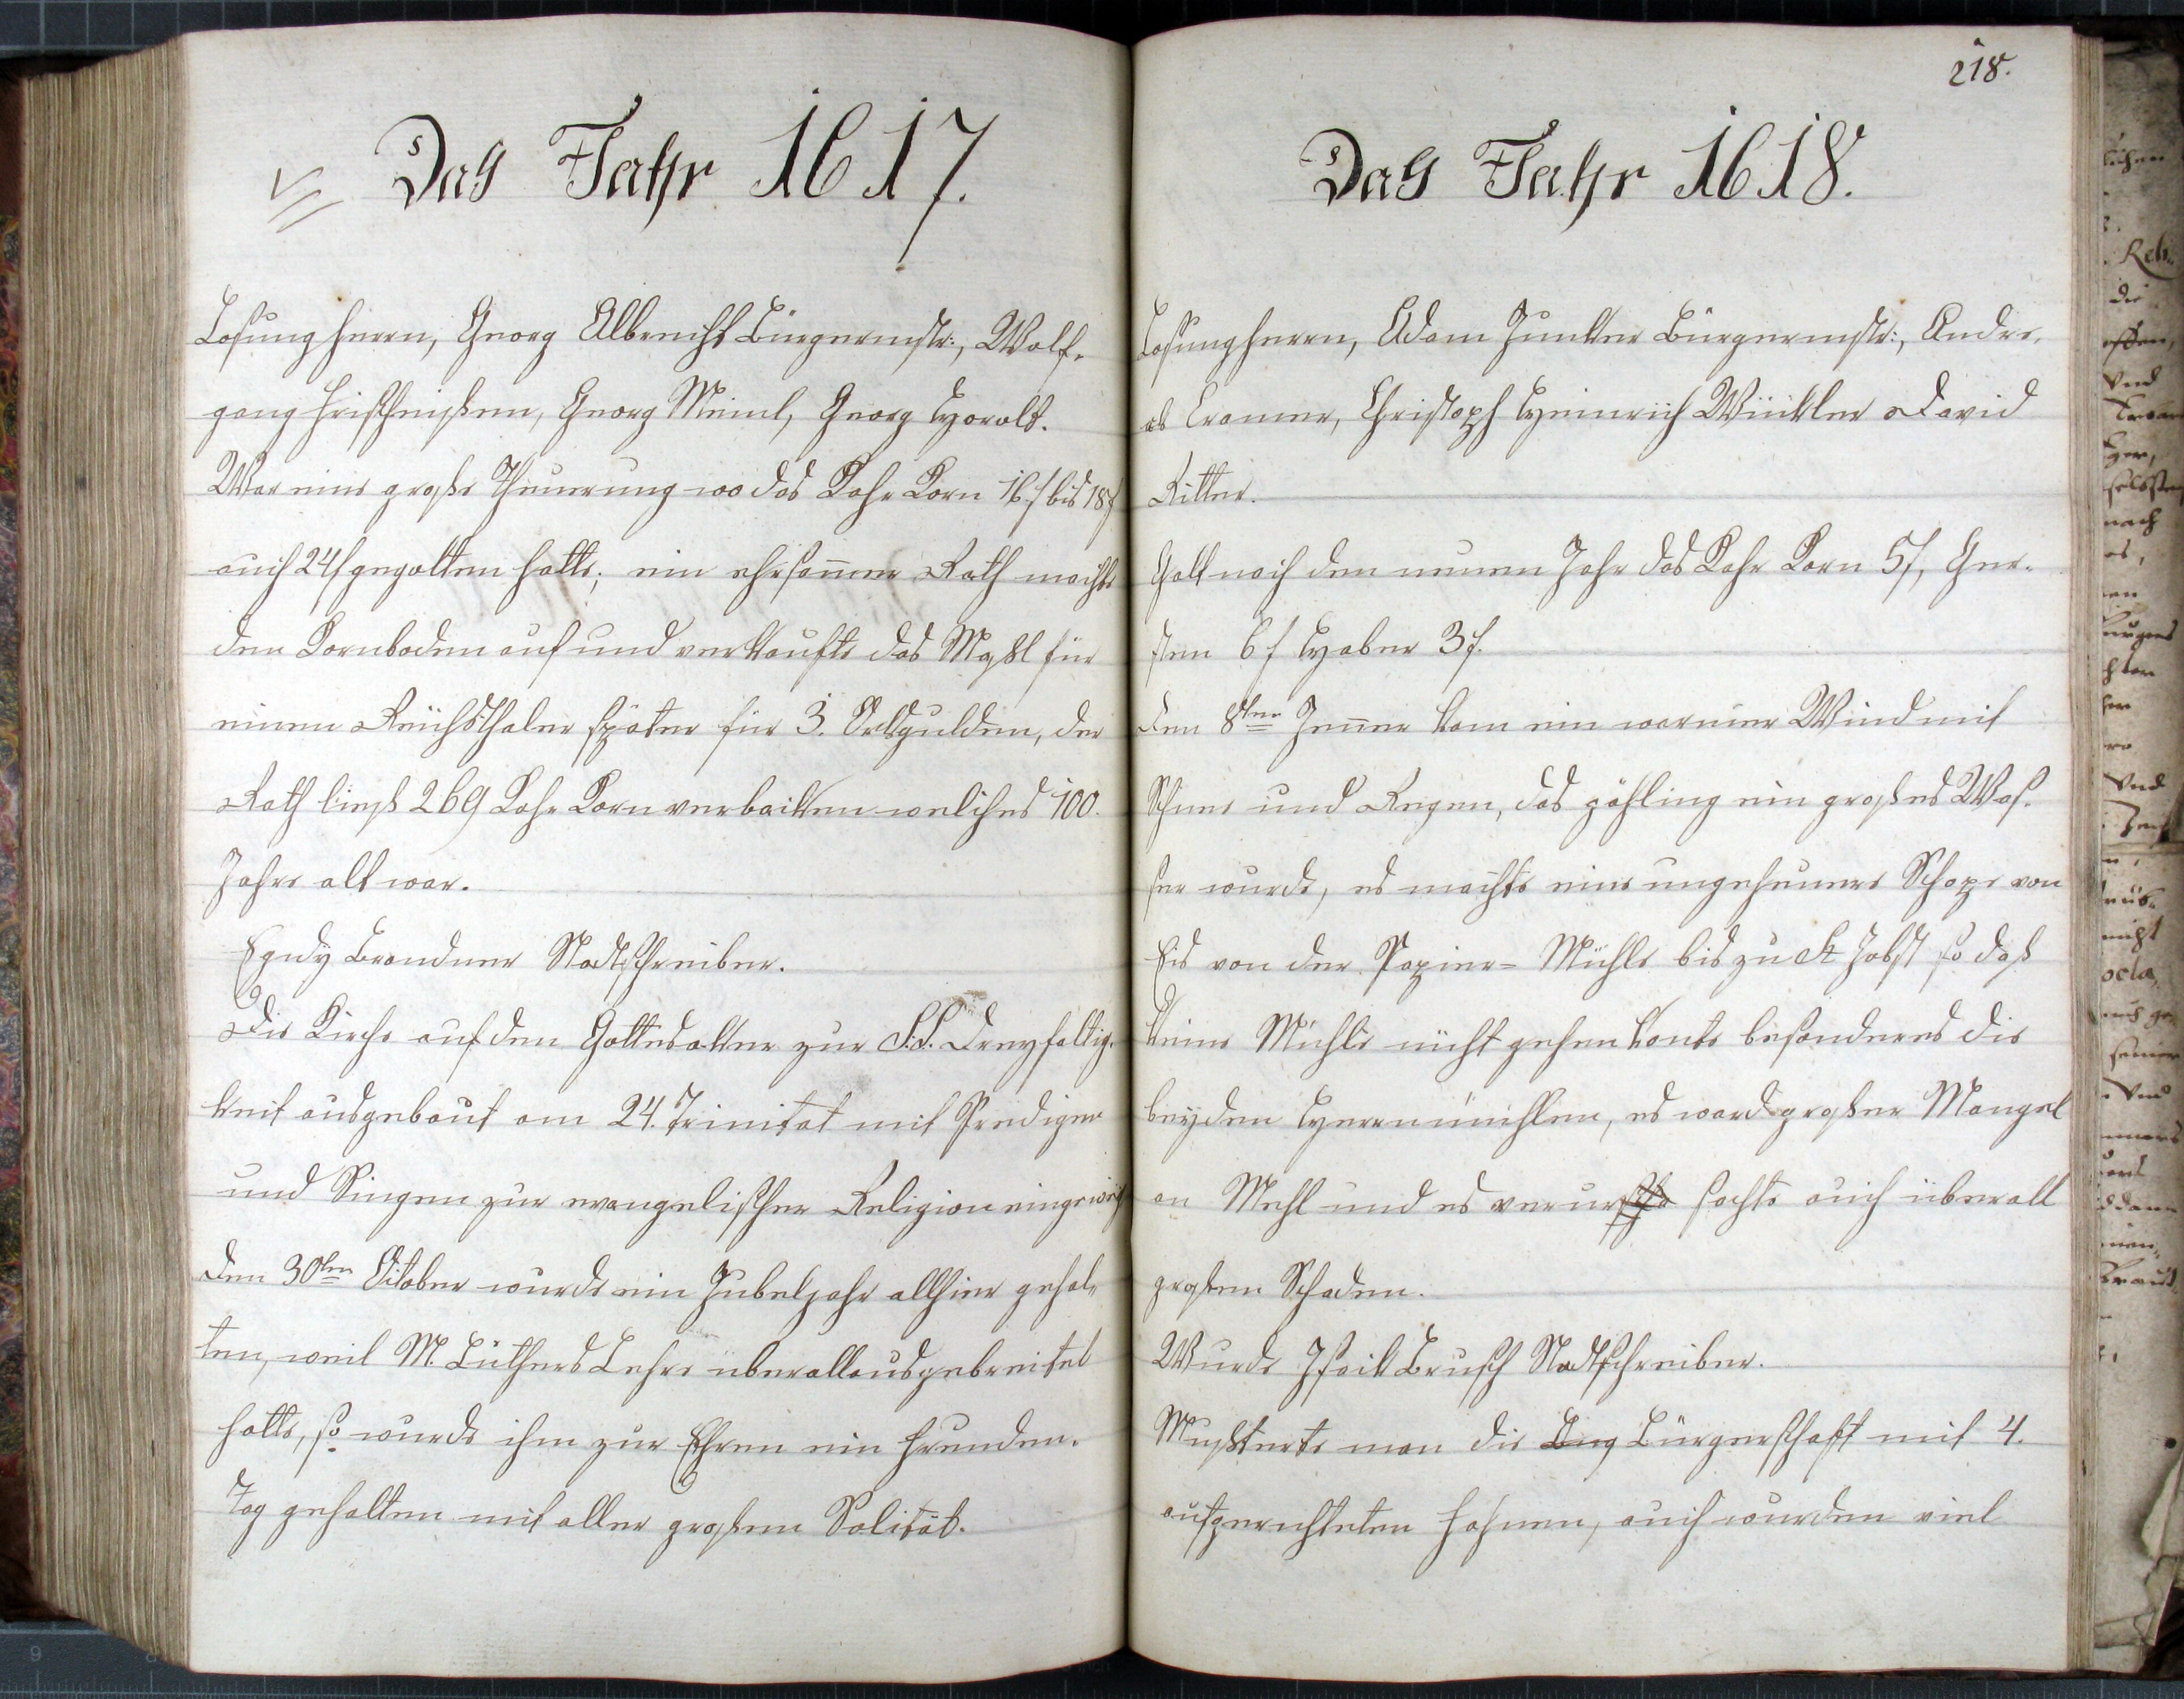 Das Jahr 1617.
Losungherrn, Georg Albrecht Bürgermstr:, Wolf-
gang Georg Meinl, Georg Horalt.
War eine große Theuerung wo das Kahr Korn 16f bis 18f
auch 24f gegolten hatte; ein ehrsamer Rath machte
den Kornboden auf und verkaufte das Maßl für
einen Reichsthaler später für 3. Ortsgulden, der
Rath ließ 269 Kahr Korn verbacken welches 100.
Jahre alt war.
Egidy Brandner Stadtschreiber.
Die Kirche auf den Gottesacker zur S.S. Dreyfaltig-
keit ausgebaut am 24. Trinitat mit Predigen
und Singen zur evangelischen Religion eingeweiht
den 30ten Octaber wurde ein Jubeljahr allhier gehal-
ten, weil M. Luthers Lehre überall ausgebreitet
hatte, so wurde ihm zur Ehren ein Freuden-
Tag gehalten mit aller großen Solität.
218.
Das Jahr 1618.
Losungherrn, Adam Junker Bürgermstr:, Andre-
as Cramer, Christoph Heinrich Winkler David
Ritter.
Galt nach den neuen Jahr das Kahr Korn 5f, Ger-
sten 6f Haber 3f.
den 8ten Jenner kam ein warmer Wind mit
Schnee und Regen, das gähling ein großes Was-
ser wurde, es machte eine ungeheuere Schope von
Eis von der Papier-Mühle bis zu St Jobst so daß
keine Mühle nicht gehen konte besonderes die
beyden Herrnmühlen, es ward großer Mangel
an Mehl und es verur sachte auch überall
großen Schaden.
Wurde Isaik Brusch Stadtschreiber.
Mußterte man die Bürg Bürgerschaft mit 4.
aufgerichteten Fahnen, auch wurden viel